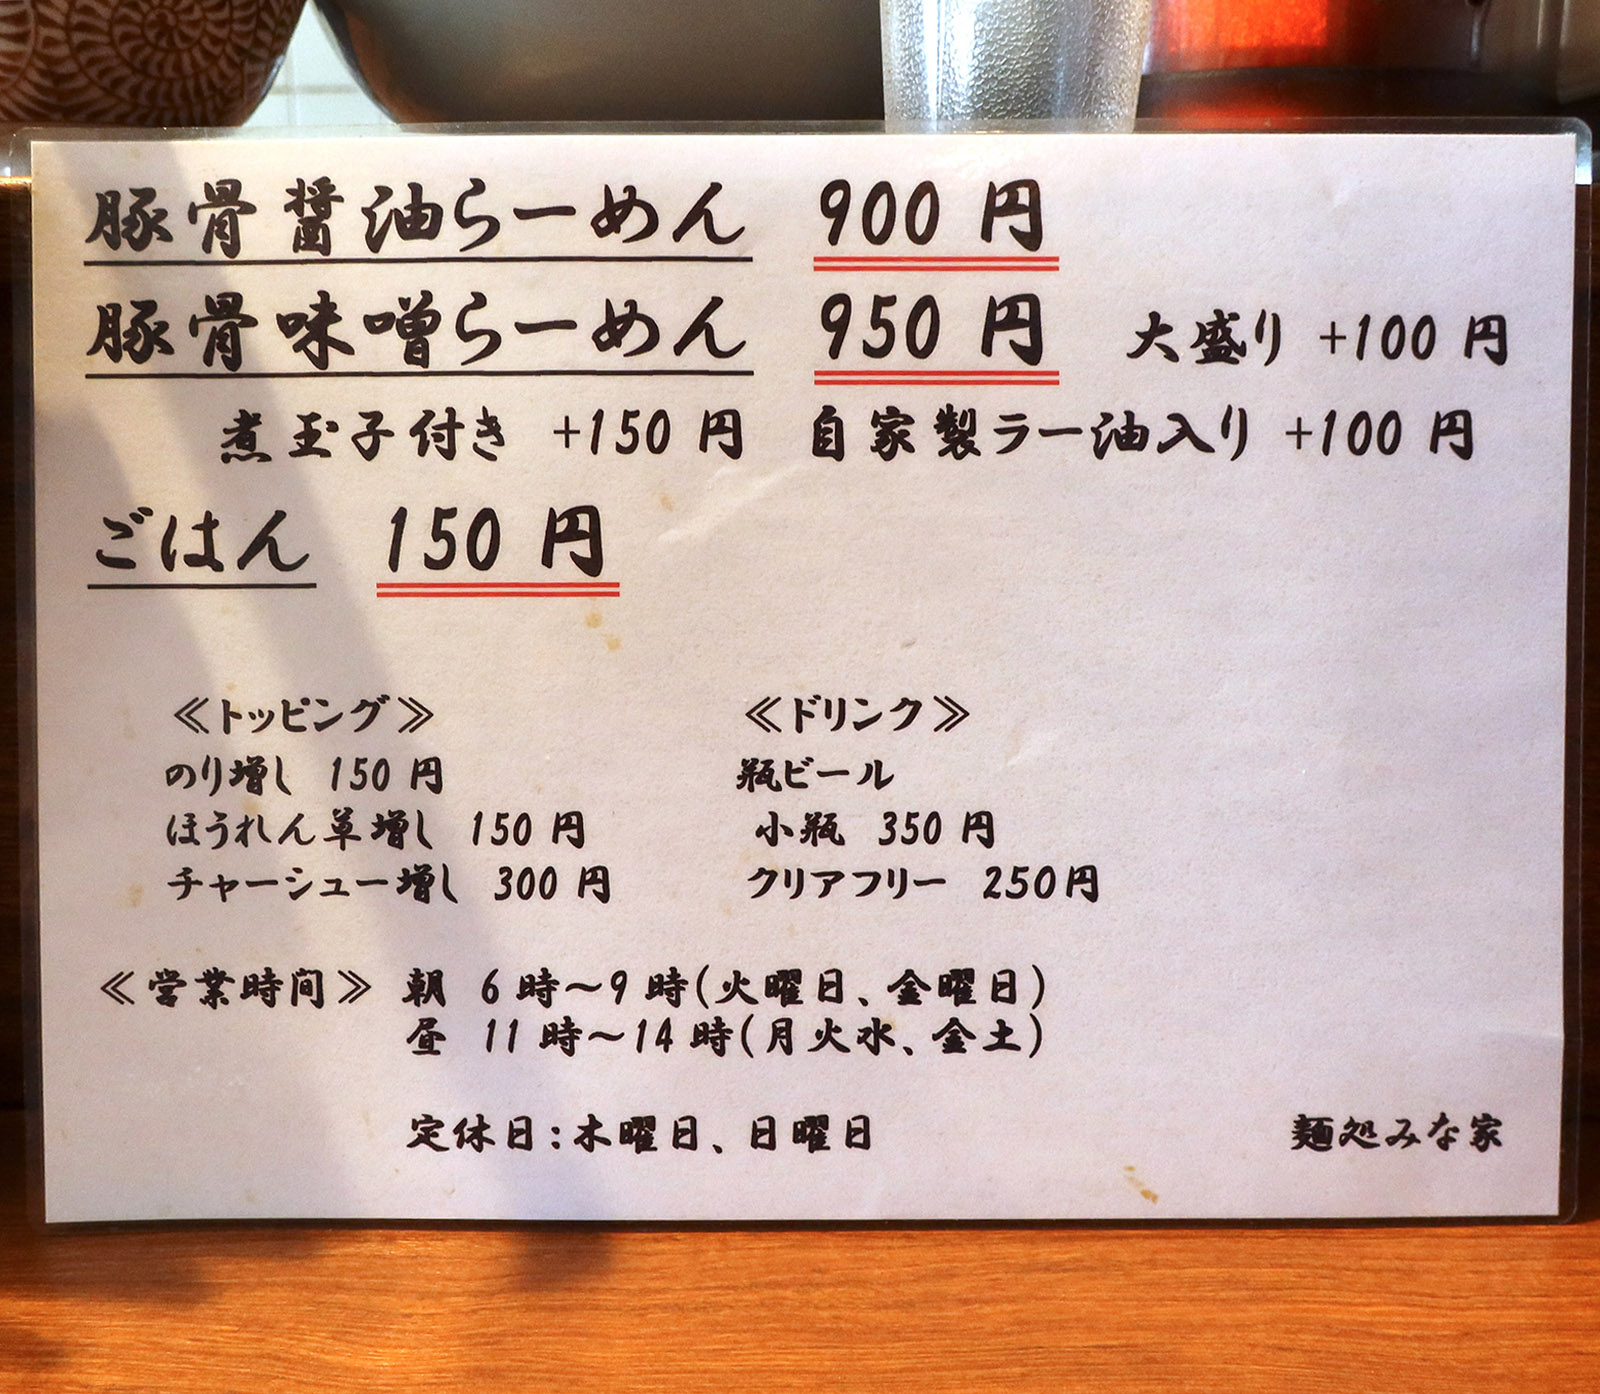 豚骨醤油らーめん 900円
豚骨味噌らーめん 950円 大盛り +100円
煮玉子付き +150円 自家製ラー油入り +100円
ごはん 150円
≪トッピング≫ ≪ドリンク≫
のり増し 150円 瓶ビール
ほうれん草増し 150円 小瓶 350円
チャーシュー増し 300円 クリアフリー 250円
≪営業時間≫ 朝 6時～9時(火曜日、金曜日)
昼 11時～14時(月火水、金土)
定休日:木曜日、日曜日 麺処みな家